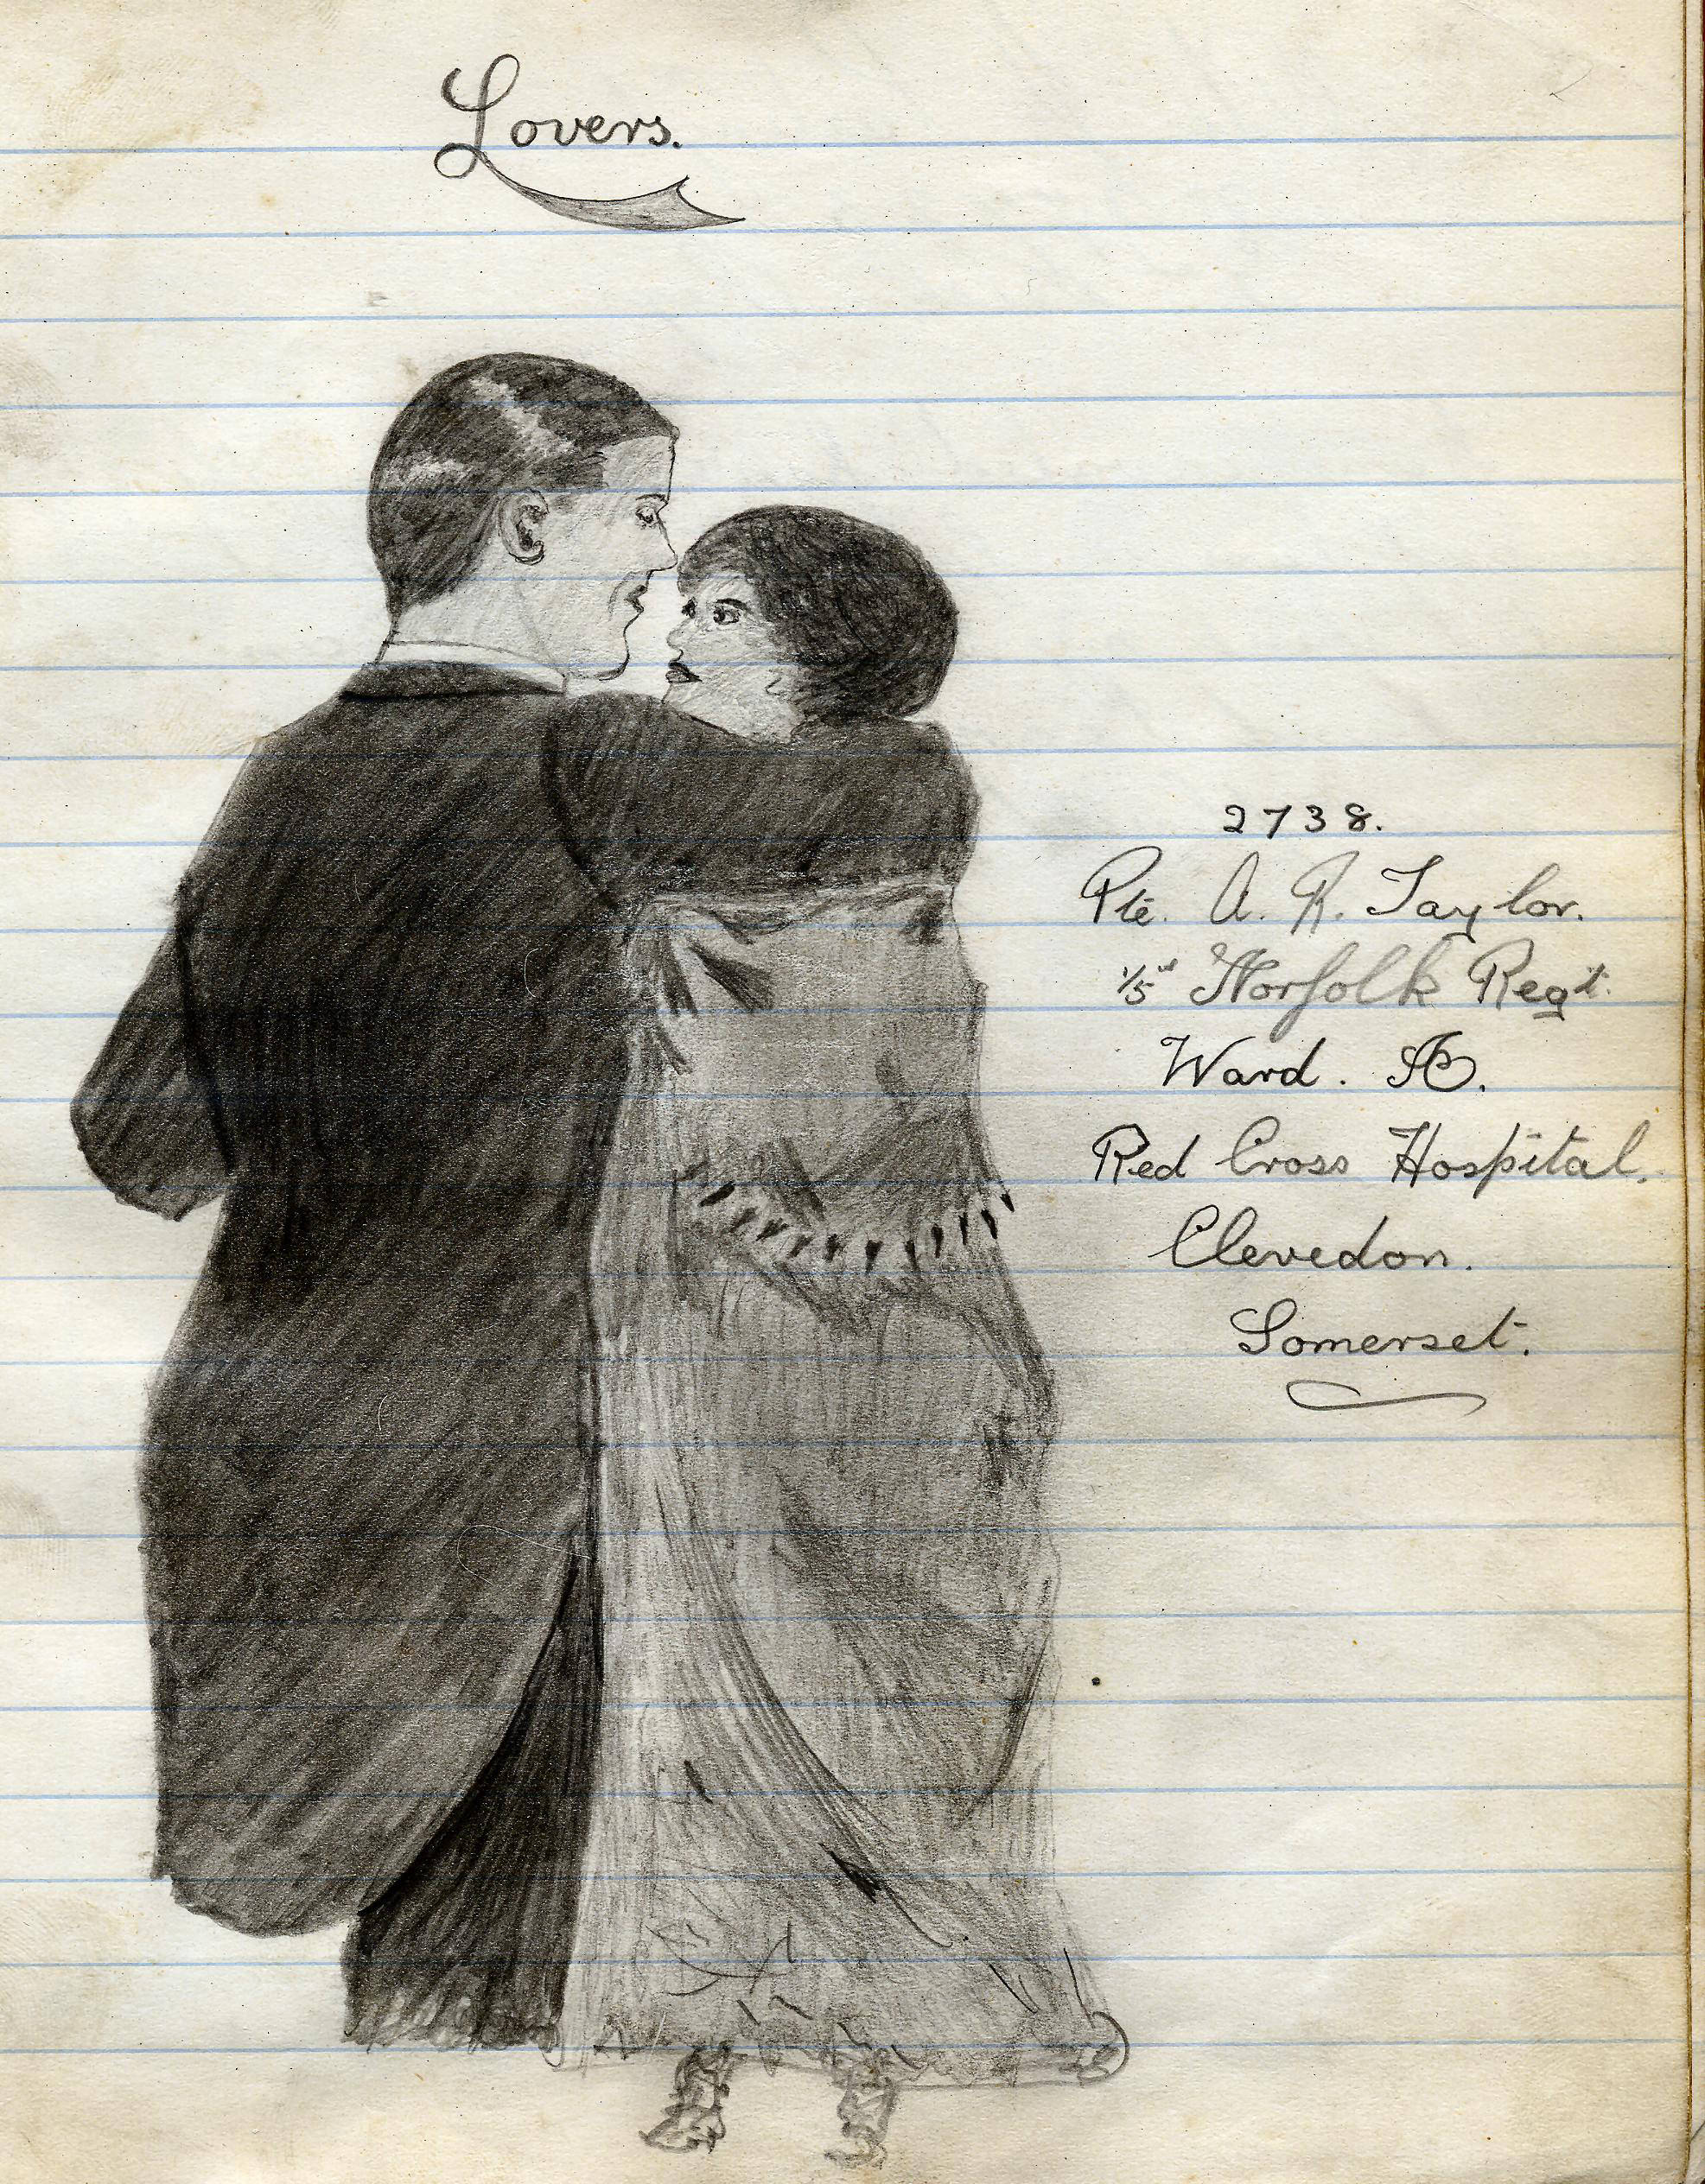 Lovers.
2738.
Pte. A. R. Taylor.
1/5 Norfolk Regt.
Ward.
Red Cross Hospital.
Clevedon.
Somerset.